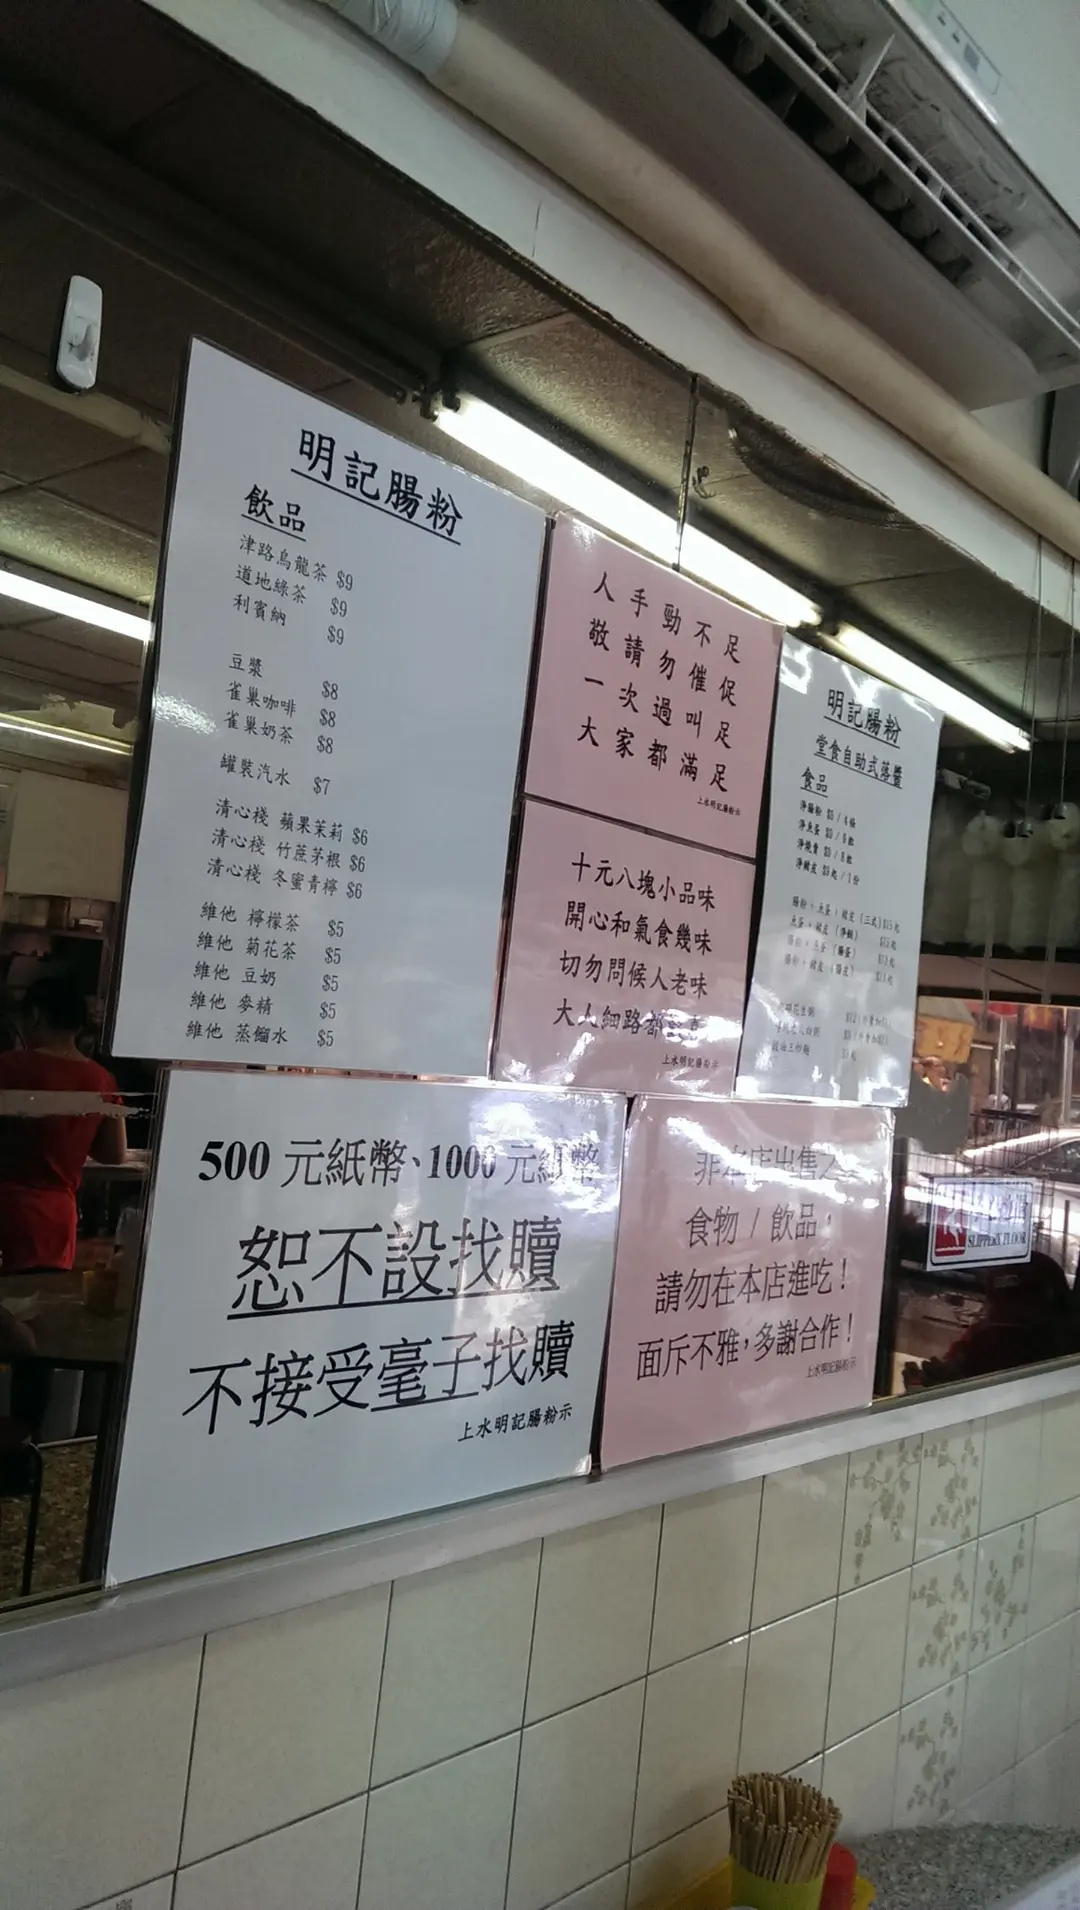 明記腸粉
飲品
津路烏龍茶 $9
道地綠茶 $9
利賓納 $9
豆漿 $8
雀巢咖啡 $8
雀巢奶茶 $8
罐裝汽水 $7
清心棧 蘋果茉莉 $6
清心棧 竹蔗茅根 $6
清心棧 冬蜜青檸 $6
維他 檸檬茶 $5
維他 菊花茶 $5
維他 豆奶 $5
維他 麥精 $5
維他 蒸餾水 $5
人手勁不足
敬請勿催促
一次過叫足
大家都滿足
上水明記腸粉示
十元八塊小品味
開心和氣食幾味
切勿問候人老味
大人細路都
上水明記腸粉示
明記腸粉
堂食自助式落醬
食品
淨腸粉 $5 / 4條
淨魚蛋 $5 / 5粒
淨燒賣 $5 / 5粒
淨豬皮 $5起 / 1份
500元紙幣、1000元紙幣
恕不設找贖
不接受毫子找贖
上水明記腸粉示
非本店出售之
食物 / 飲品，
請勿在本店進吃！
面斥不雅，多謝合作！
上水明記腸粉示
SLIPPERY FLOOR